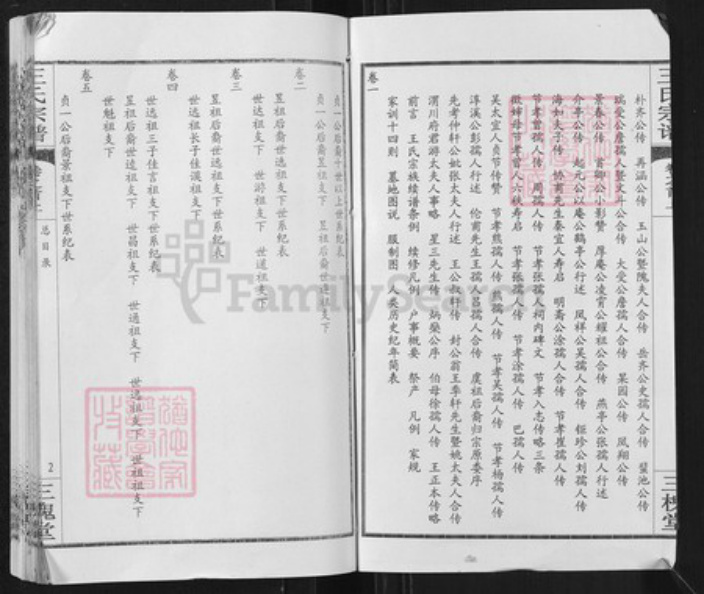 王氏宗谱
卷之首上
三槐堂
朴齐公传 再涵公传 玉山公暨隗夫人合传 岳齐公史孺人合传 粲池公传
瑞爱公詹孺人暨文斗公合传 大受公詹孺人合传 果园公传 凤翔公传
景春公传 首卿公小影赞 厚庵公凌宵公耀祖公合传 燕亭公张孺人行述
介亭公传 起元公以庵公鹤亭公行述 凤祥公吴孺人合传 钜珍公刘孺人传
海如夫子传 协甫先生秦宜人寿启 明斋公涂孺人合传 节孝崔孺人传
节孝曾孺人传 周孺人传 节孝张孺人祠内碑文 节孝入志传略三条
叔婶母节孝曾人六秩寿启 节孝张孺人传 节孝涂孺人传 巴孺人传
吴太宜人贞节传赞 节孝熊孺人传 熊孺人传 节孝吴孺人传 节孝杨孺人传
淳溪公彭孺人行述 伦甫先生王孺吕孺人合传 虞祖后裔归宗原委序
先考仲轩公妣张太夫人行述 王公叔轩传 封公翁王季轩先生暨姚太夫人合传
渭川府君游太夫人事略 星三先生传 炳燊公序 伯母徐孺人传 王正本传略
前言 王氏宗族续谱条例 续修凡例 户事概要 祭产 凡例 家规
家训十四则 墓地图说 服制图 人类历史纪年简表
卷一
贞一公后裔十世以上世系纪表
贞一公后裔昱祖支下 昱祖后裔世连祖支下
卷二
昱祖后裔世选祖支下世系纪表
世达祖支下 世游祖支下 世道祖支下
卷三
昱祖后裔世逸祖支下世系纪表
世远祖长子佳谟祖支下
卷四
世远祖三子佳言祖支下世系纪表
昱祖后裔世述祖支下 世昌祖支下 世通祖支下 世逵祖支下 世祖祖支下
世魁祖支下
卷五
贞一公后裔景祖支下世系纪表
王氏宗谱
卷之首上
总目录
2
三槐堂
FamilySearch